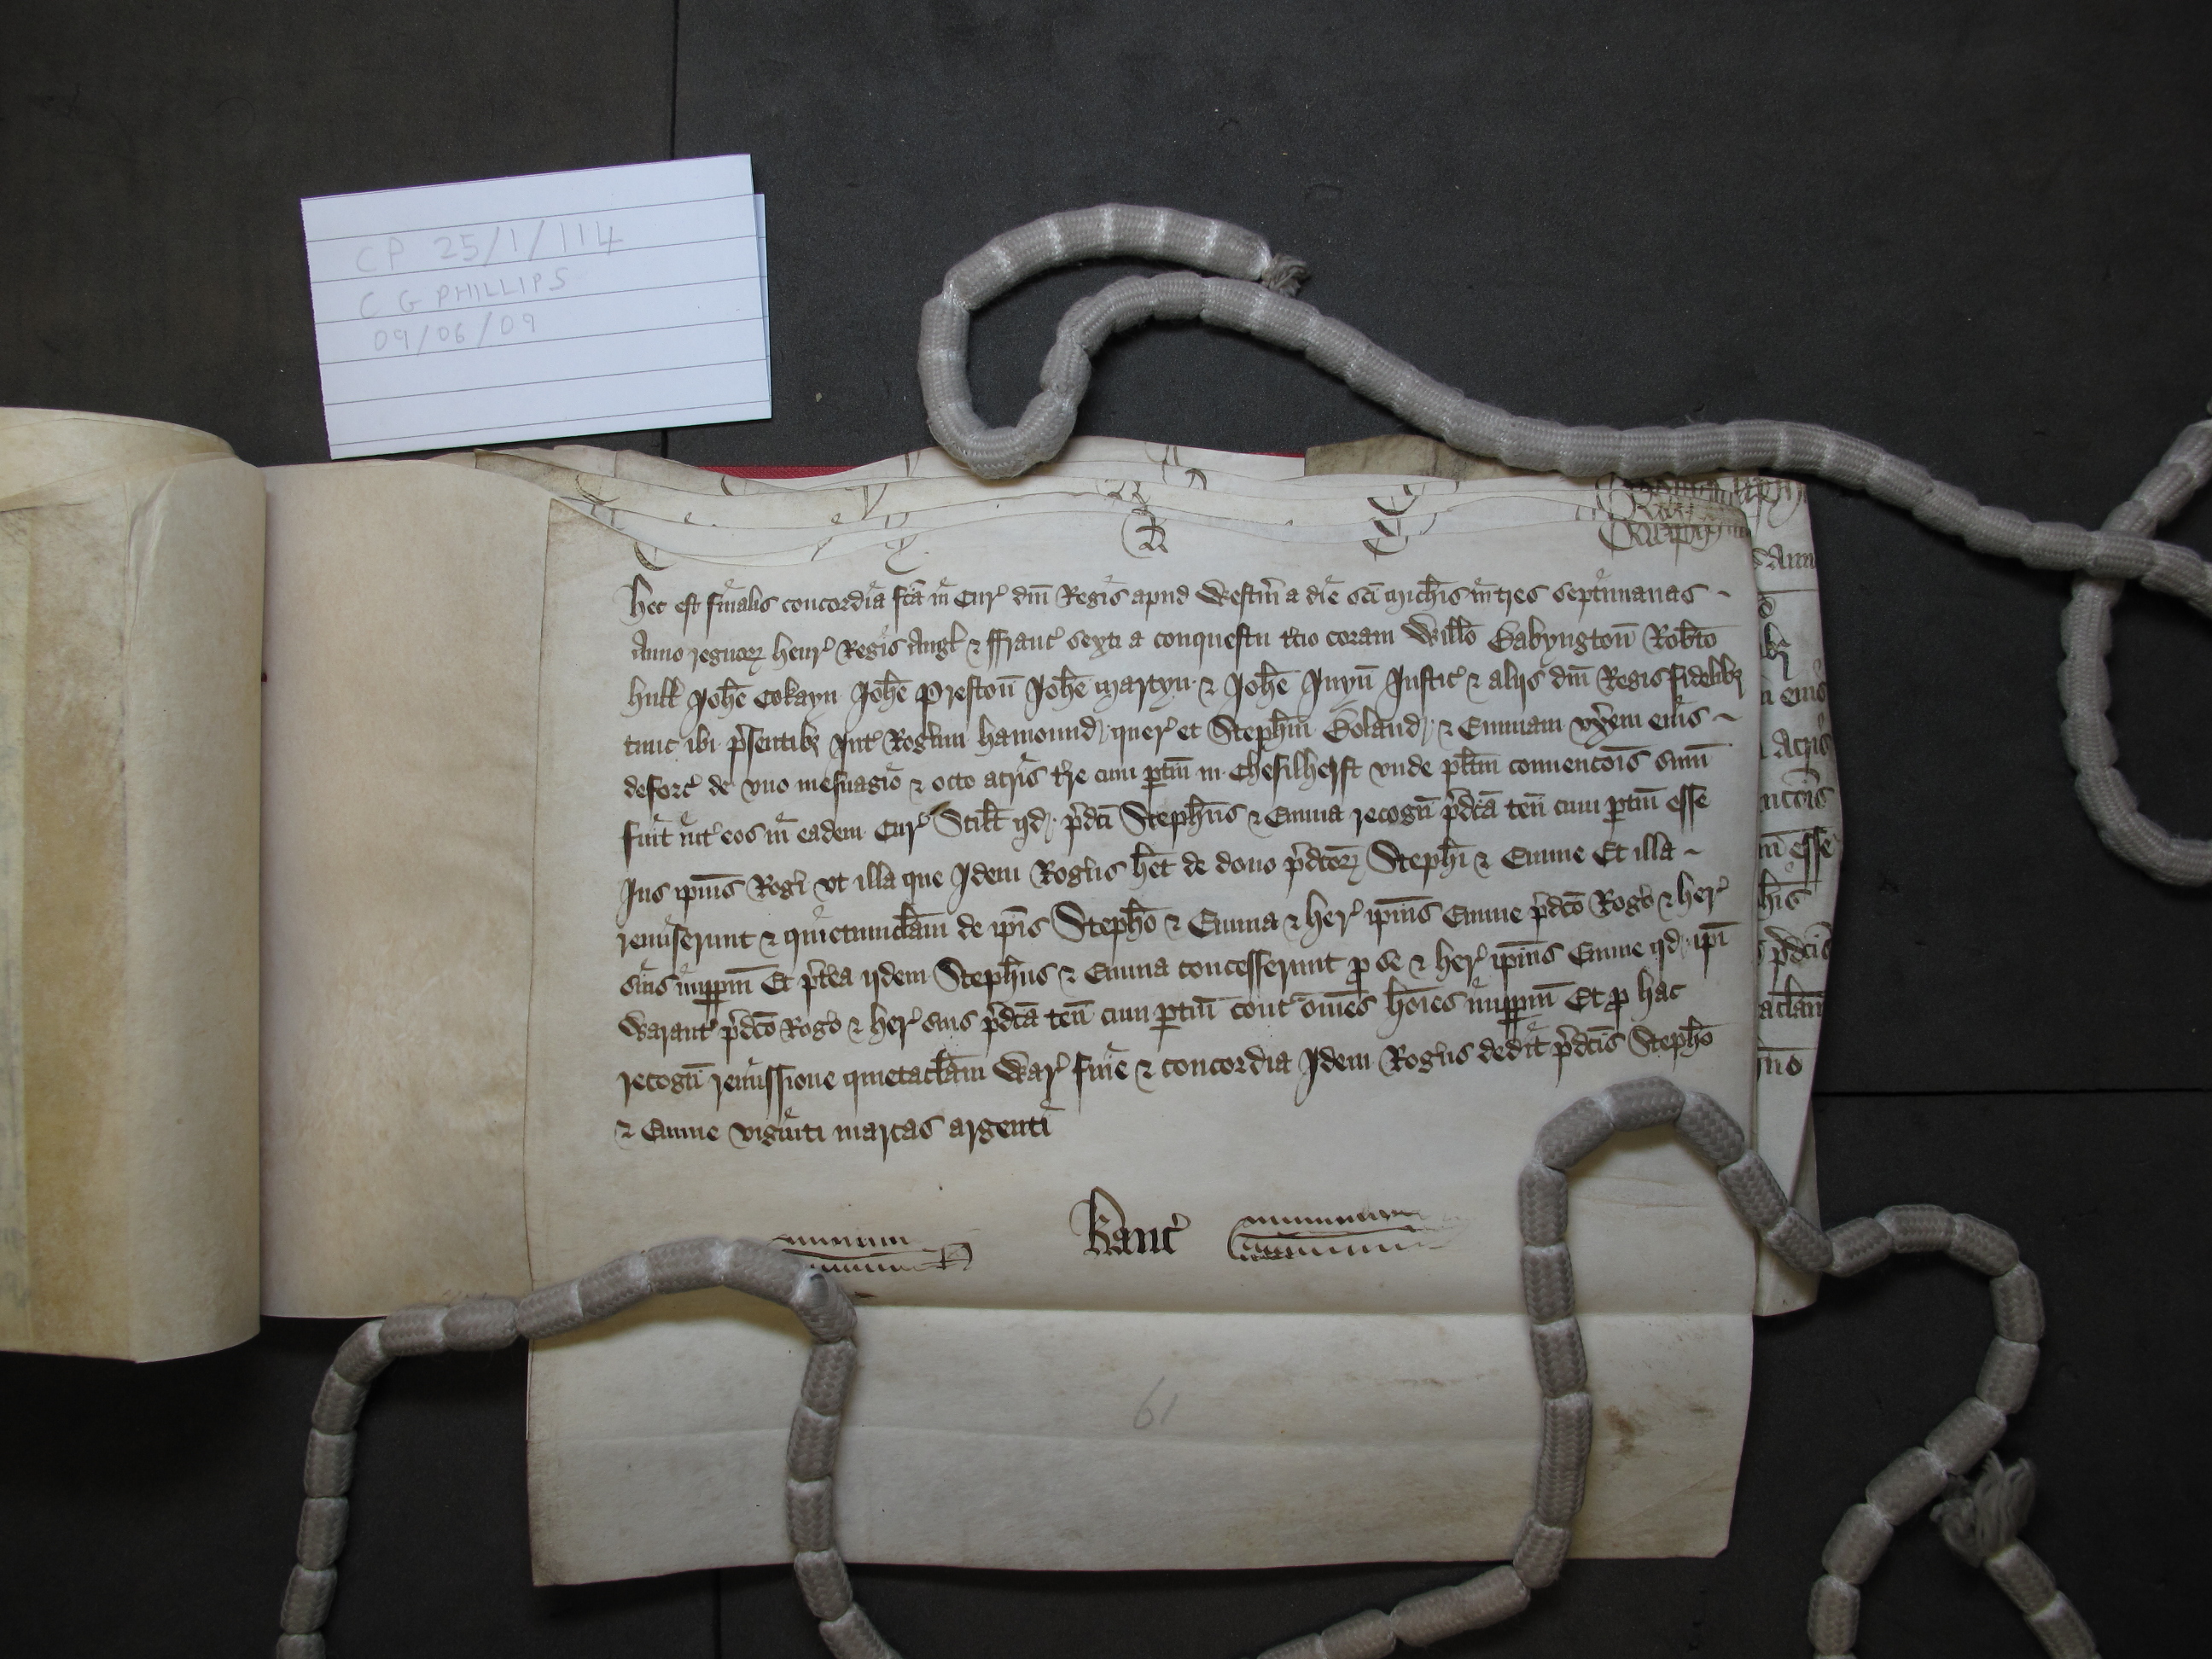 CP 25/1/114
C G PHILLIPS
09/06/09
Hec est finalis concordia fc̄a in Cur' dn̄i Regis apud Westm̄ a die sc̄i Mich̄is in tres septimanas
Anno regnoꝝ Henr' Regis Angl' & Franc' sexti a conquestu t'cio coram Will̄o Babyngton̄ Rob̄to
Hull Joh̄e Cokayn Joh̄e Preston̄ Joh̄e Martyn & Joh̄e Juyn̄ Justic' & alijs dn̄i Regis fidelibꝫ
tunc ibi p̄sentibꝫ Int' Rog̕um Hamound quer' et Steph̄m Boland & Emmam vx̄em eius
deforc' de vno mesuagio & octo acris t̄re cum ptin̄ in Chesilherst vnde pl̄itm conuenc̄ois sum̄
fuit int' eos in eadem Cur' Scil̄t qd p̄dc̄i Steph̄us & Emma recogn̄ p̄dc̄a ten̄ cum ptin̄ esse
Jus ip̄ius Rog̕i vt illa que Idem Rog̕us h̄et de dono p̄dc̄oꝝ Steph̄i & Emme Et illa
remiserunt & quietumclam̄ de ip̄is Steph̄o & Emma & her' ip̄ius Emme p̄dc̄o Rog̕o & her'
suis imppm̄ Et p̄t̄ea ijdem Steph̄us & Emma concesserunt p se & her' ip̄ius Emme qd ip̄i
Warant' p̄dc̄o Rog̕o & her' suis p̄dc̄a ten̄ cum ptin̄ cont' om̄es hōies imppm̄ Et p hac
recogn̄ remissione quietaclam̄ War' fine & concordia Idem Rog̕us dedit p̄dc̄is Steph̄o
& Emme viginti marcas argenti
Kanc'
61